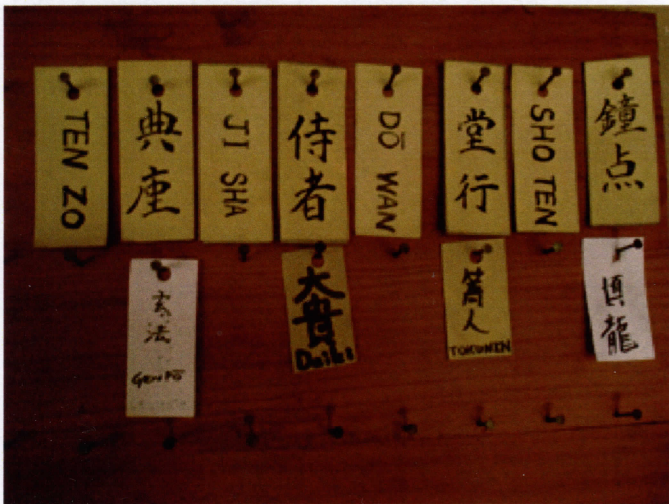 TEN ZO
典座
JI SHA
侍者
DŌ WAN
堂行
SHO TEN
鐘点
玄法
大貴
Daiki
人
TOKUNIN
慎龍